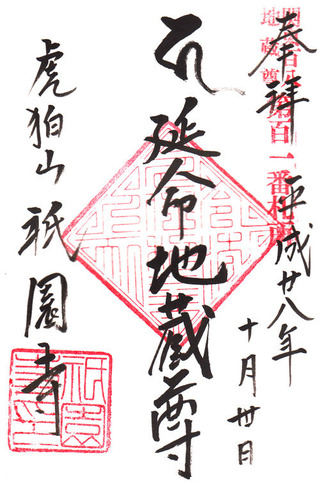 奉拝 平成廿八年
十月廿日
関東百八
地蔵尊 第百一番札所
延命地蔵尊
虎狛山 祇園寺